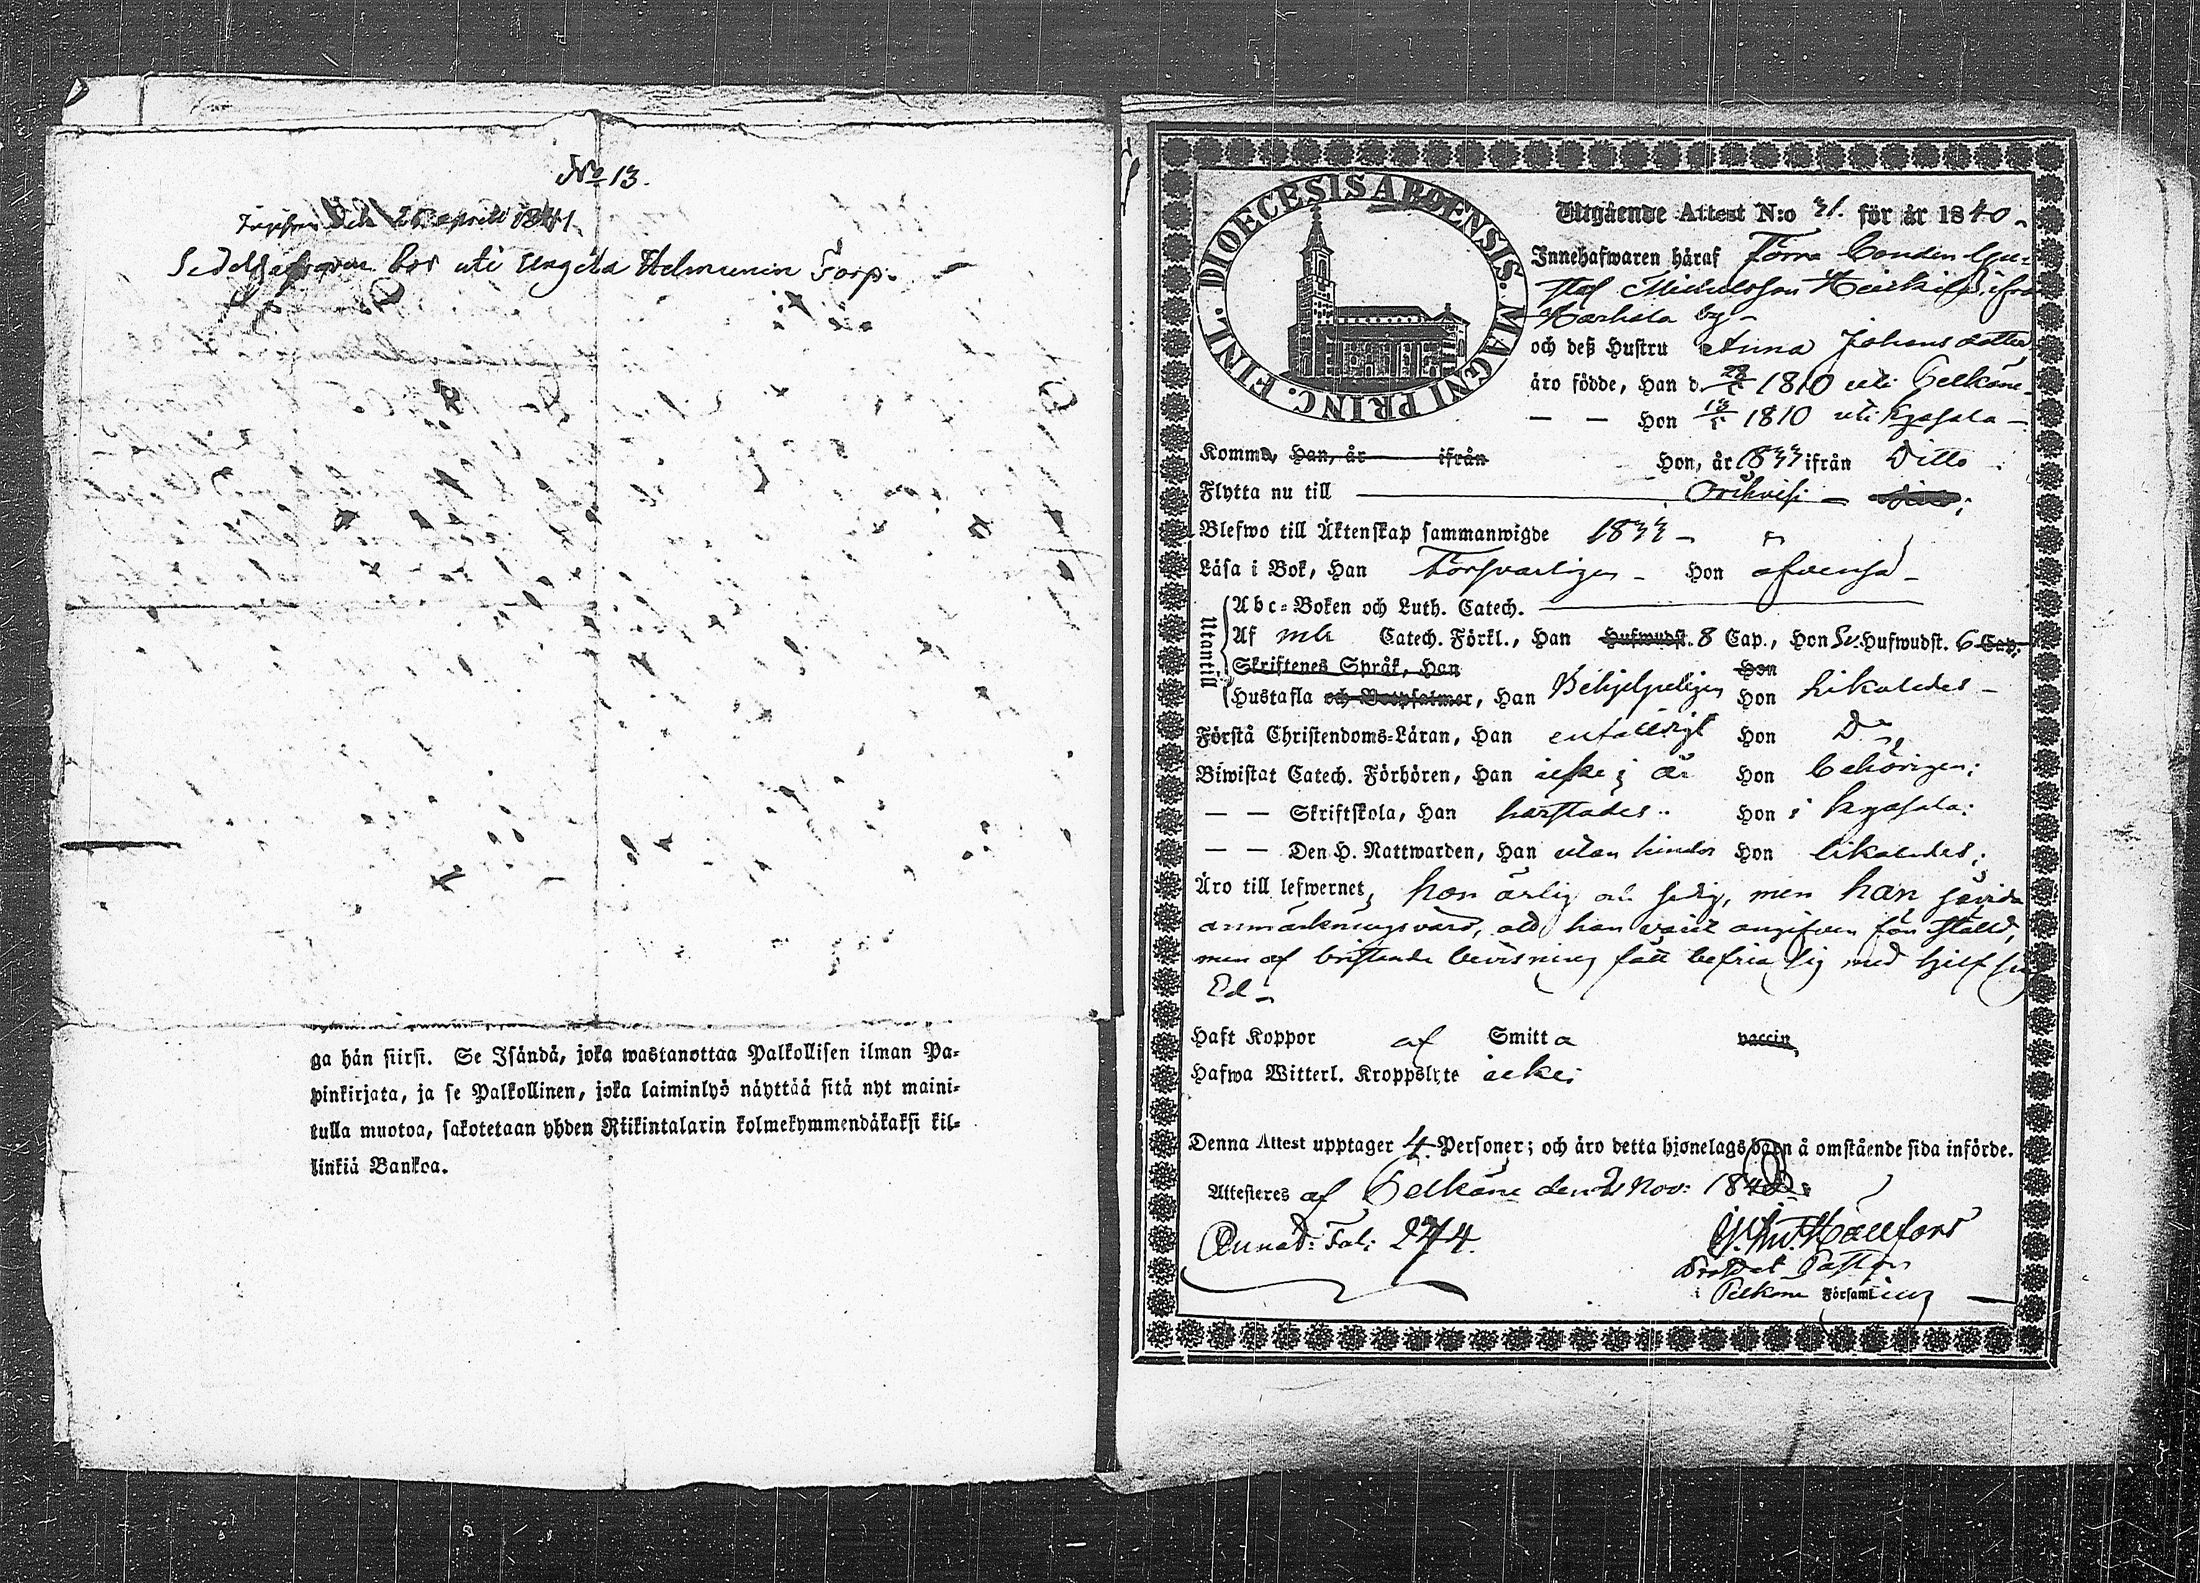 No 13.
den 26 aprill 1841.
Sedelhafvaren bor uti Ungila Helmunin Torp.
ga hän siirsi. Se Isändä, joka wastanottaa Palkollisen ilman Pa-
pinkirjata, ja se Palkollinen, joka laiminlyö näyttää sitä nyt maini-
tulla muotoa, sakotetaan yhden Riikintalarin kolmekymmendäkaksi kil-
linkiä Bankoa.
DIOECESIS ABOENSIS. MAGNI PRINC. FINL.
Utgående Attest N:o 31. för år 1840.
Innehafwaren häraf Förra Bonden Gu-
staf Michelsson Heikkilä ifrån
Harhala by
och deß Hustru Anna Johansdotter
äro födde, Han d. 1810 uti Pelkäne
— — Hon 1810 uti Kgasala
Komm, Han, år ifrån Hon, år 1833 ifrån Ditto
Flytta nu till Orihvesi
Blefwo till Äktenskap sammanwigde 1833
Läsa i Bok, Han Försvarligen Hon äfvenså
Utantill
Abc-Boken och Luth. Catech.
Af Catech. Förkl., Han Hufwudst. 8 Cap., Hon Sv. Hufwudst. 6 Cap.
Skriftenes Språk, Han Hon
Hustafla och Botpsalmer, Han Behjelpeligen Hon likaledes
Förstå Christendoms-Läran, Han enfaldigt Hon Do
Biwistat Catech. Förhören, Han icke i år Hon behörigen;
— — Skriftskola, Han härstädes Hon i Kgasala:
— — Den H. Nattwarden, Han utan hinder Hon likaledes;
Äro till lefwernet, hon ärlig och sedig, men han såvida
anmärkningsvärd, att han varit angifven för stöld,
men af bristande bevisning fått befria sig med sin
Ed
Haft Koppor af Smitta vaccin
Hafwa Witterl. Kroppslyte icke;
Denna Attest upptager 4 Personer; och äro detta hjonelags barn å omstående sida införde.
Attesteres af Pelkäne den 2 Nov: 1840
Fol: 274.
Hällfors
Pastor
i Pelkäne Församling